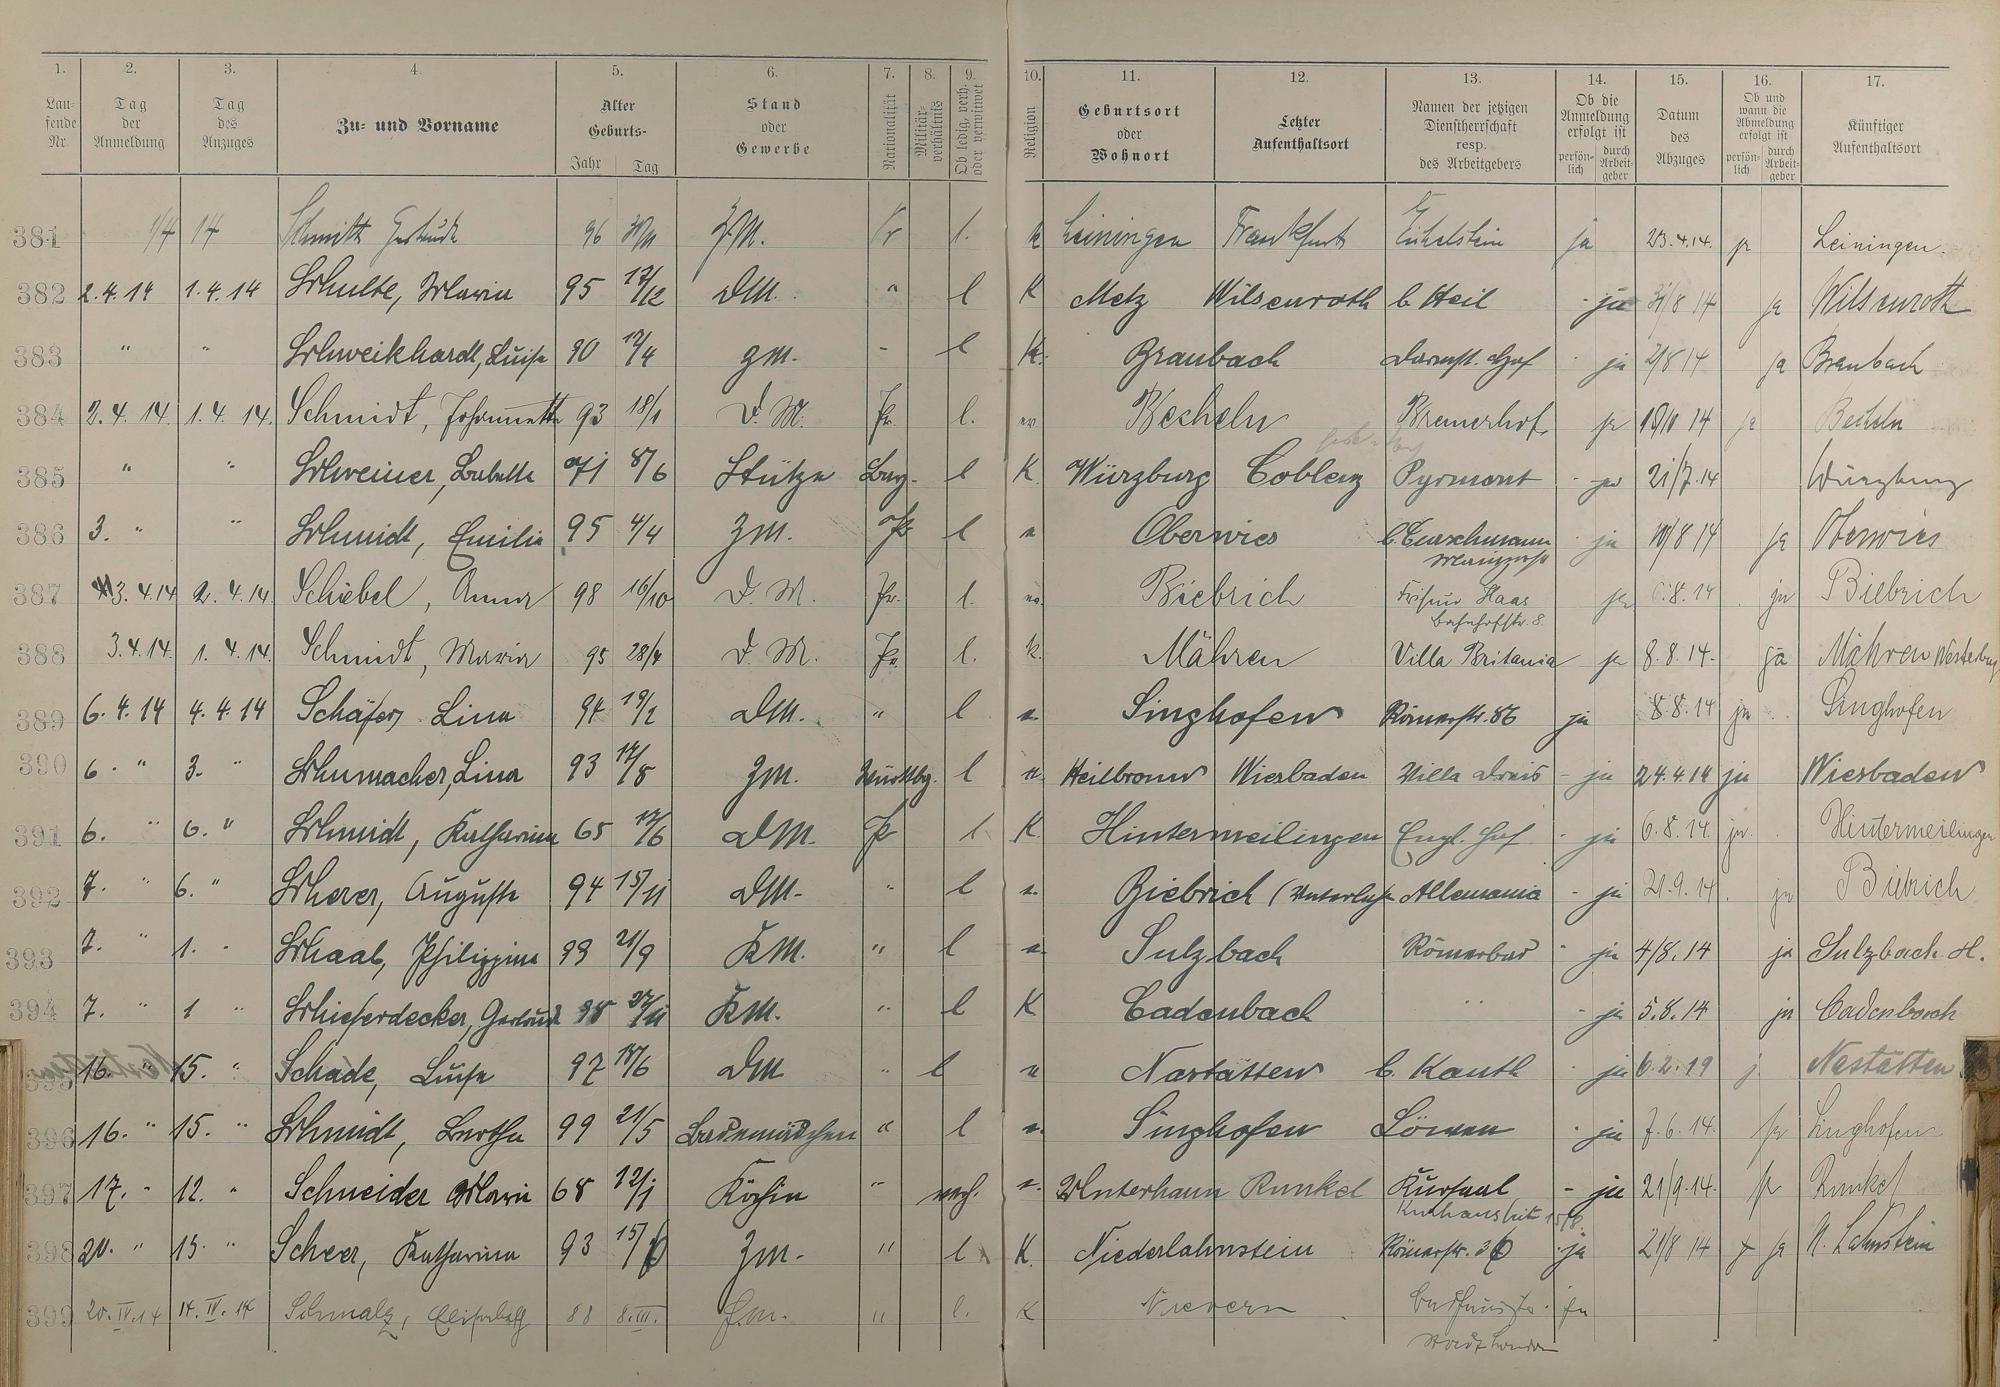 1. 2. 3. 4. 5. 6. 7. 8. 9. 10. 11. 12. 13. 14. 15. 16. 17.
Lau-fende Nr. Tag der Anmeldung Tag des Anzuges Zu- und Vorname Alter Geburts- Jahr Tag Stand oder Gewerbe Nationalität Militär-verhältnis Ob ledig, verh. oder verwitwet Religion Geburtsort oder Wohnort Letzter Aufenthaltsort Namen der jetzigen Dienstherrschaft resp. des Arbeitgebers Ob die Anmeldung erfolgt ist persön-lich durch Arbeit-geber Datum des Abzuges Ob und wann die Abmeldung erfolgt ist persön-lich durch Arbeit-geber Künftiger Aufenthaltsort
381 1/4 14 Schmitt Gertrude 96 Z.M. Pr l. k Leiningen Frankfurt ja 23.4.14. ja Leiningen.
382 2.4.14 1.4.14 Schulte, Maria 95 17/12 DM. " l K Metz Wilsenroth b. Heil - ja 31/8 14 ja Wilsenroth
383 " " Schweikhardt, Luise 90 17/4 Zm. - l K. Braubach Darmst. Hof - ja 2/8 14 ja Braubach
384 2.4.14. 1.4.14. Schmidt, Johannette 93 18/1 D. M. Pr. l. ev. Becheln Bremerhof. ja 14 ja Becheln
385 " " Schreiner, Babette 71 8/6 Stütze Bay. l K Würzburg Coblenz Pyrmont - ja 21/7.14 Würzburg
386 3. " " Schmidt, Emilie 95 4/4 Zm. Pr l e Oberwies - ja 10/8 14 ja Oberwies
387 3.4.14 2.4.14. Schiebel, Anna 98 16/10 D. M. Pr. l. ev. Biebrich Friseur Haas ja 8.14 ja Biebrich
Bahnhofstr. 8.
388 3.4.14. 1.4.14. Schmidt, Maria 95 28/4 D. M. Pr. l. k. Mähren Villa Britania ja 8.8.14. ja Mähren Westerburg
389 6.4.14 4.4.14 Schäfer, Lina 94 19/2 DM. " l e. Singhofen Römerstr. 86 ja 8.8.14 ja Singhofen
390 6. " 3. " Schumacher, Lina 93 14/8 Zm. Württbg. l e. Heilbronn Wiesbaden Villa Dreis - ja 24.4.14 ja Wiesbaden
391 6. " 6. " Schmidt, Katharina 65 17/6 DM. Pr l K. Hintermeilingen Engl. Hof - ja 6.8.14. ja. Hintermeilingen
392 7. " 6. " Scherer, Auguste 94 15/11 DM. " l e. Biebrich Allemania - ja 21.9.14. ja Biebrich
393 7. " 1. " Schaab, Philippine 99 21/9 KM. " l e. Sulzbach Römerbad - ja 4/8.14 ja Sulzbach H.
394 7. " 1 " Schieferdecker, Gertrud 98 27/11 KM. " l K Cadenbach " - ja 5.8.14 ja Cadenbach
395 16. " 15. " Schade, Luise 97 18/6 DM " l e Nastätten b. Kauth - ja 6.2.19 j. Nastätten
396 16. " 15. " Schmidt, Bertha 99 21/5 Bademädchen " l e. Singhofen Löwen - ja 7.6.14. ja Singhofen
397 17. " 12. " Schneider Maria 68 12/1 Köchin " verh. e. Runkel Kursaal - ja 21/9.14. ja Runkel
398 20. " 15. " Scheer, Katharina 93 15/ Zm. " l K. Niederlahnstein Römerstr. ja 21/8 14 ja N. Lahnstein
399 20.IV.14 14.IV.14 Schmalz, Elisabeth 88 8.III. " l. K Nievern ja
Stadt London